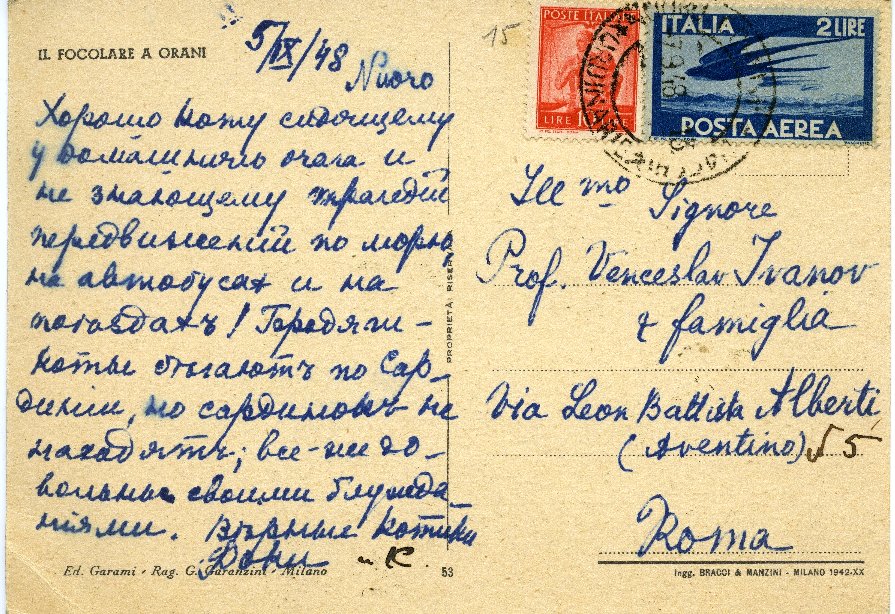 IL FOCOLARE A ORANI
5/IX/48
Nuoro
Хорошо коту сидящему
у домашняго очага и
не знающему трагедій
передвиженій по морю,
на автобусах и на
поѣздахъ!
коты бѣгаютъ по Сар-
диніи, но сардинокъ не
находятъ; все-же до-
вольны своими блужда
ніями. Вѣрные котики
и К
Ed. Garami - Rag. G. Garanzini - Milano
53
PROPRIETÀ RISERVATA
15
POSTE ITALIANE
LIRE 10
ITALIA 2 LIRE
POSTA AEREA
Ill mo Signore
Prof. Venceslav Ivanov
& famiglia
Via Leon Battista Alberti
(Aventino) 5
Roma
Ingg. BRACCI & MANZINI - MILANO 1942-XX